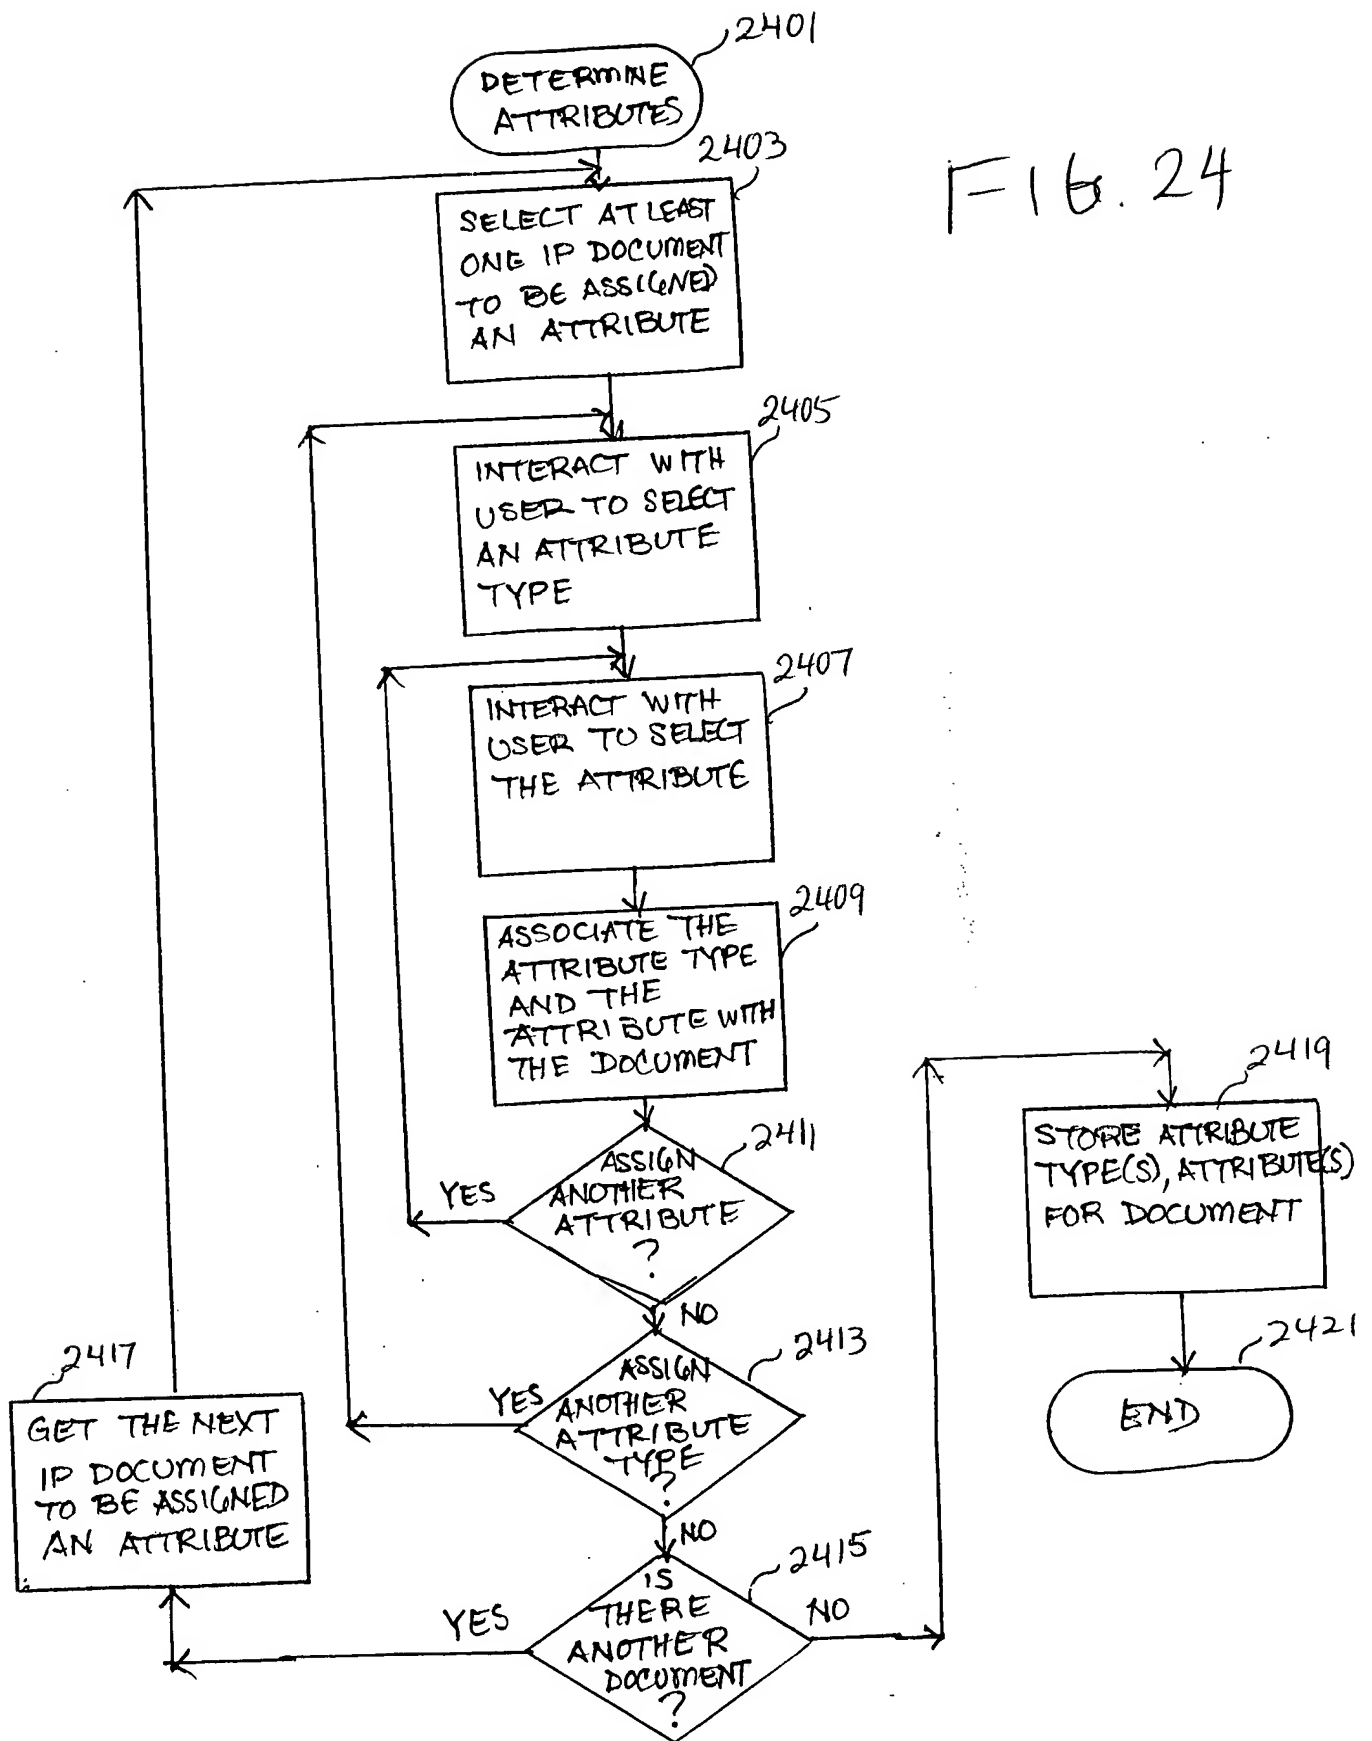 2401
DETERMINE
ATTRIBUTES
2403
FIG. 24
SELECT AT LEAST
ONE IP DOCUMENT
TO BE ASSIGNED
AN ATTRIBUTE
2405
INTERACT WITH
USER TO SELECT
AN ATTRIBUTE
TYPE
2407
INTERACT WITH
USER TO SELECT
THE ATTRIBUTE
2409
ASSOCIATE THE
ATTRIBUTE TYPE
AND THE
ATTRIBUTE WITH
THE DOCUMENT
2411
ASSIGN
ANOTHER
ATTRIBUTE
?
YES
NO
2413
ASSIGN
ANOTHER
ATTRIBUTE
TYPE
?
YES
NO
2415
IS
THERE
ANOTHER
DOCUMENT
?
YES
NO
2417
GET THE NEXT
IP DOCUMENT
TO BE ASSIGNED
AN ATTRIBUTE
2419
STORE ATTRIBUTE
TYPE(S), ATTRIBUTE(S)
FOR DOCUMENT
2421
END